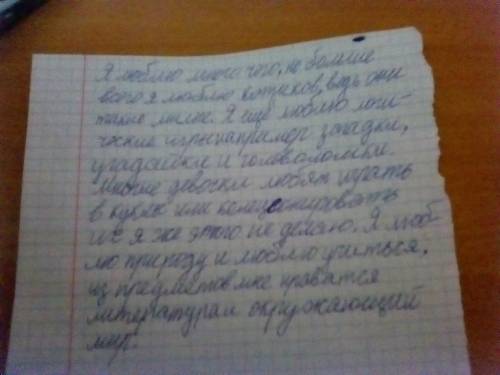 Я люблю много чего, но больше
всего я люблю котиков, ведь они
такие милые. Я ещё люблю логи-
ческие игры например загадки,
угадайки и головоломки.
Многие девочки любят играть
в кукол или колеционировать
их я же этого не делаю. Я люб-
лю природу и люблю учиться,
из предметов мне нравятся
литература и окружающий
мир.